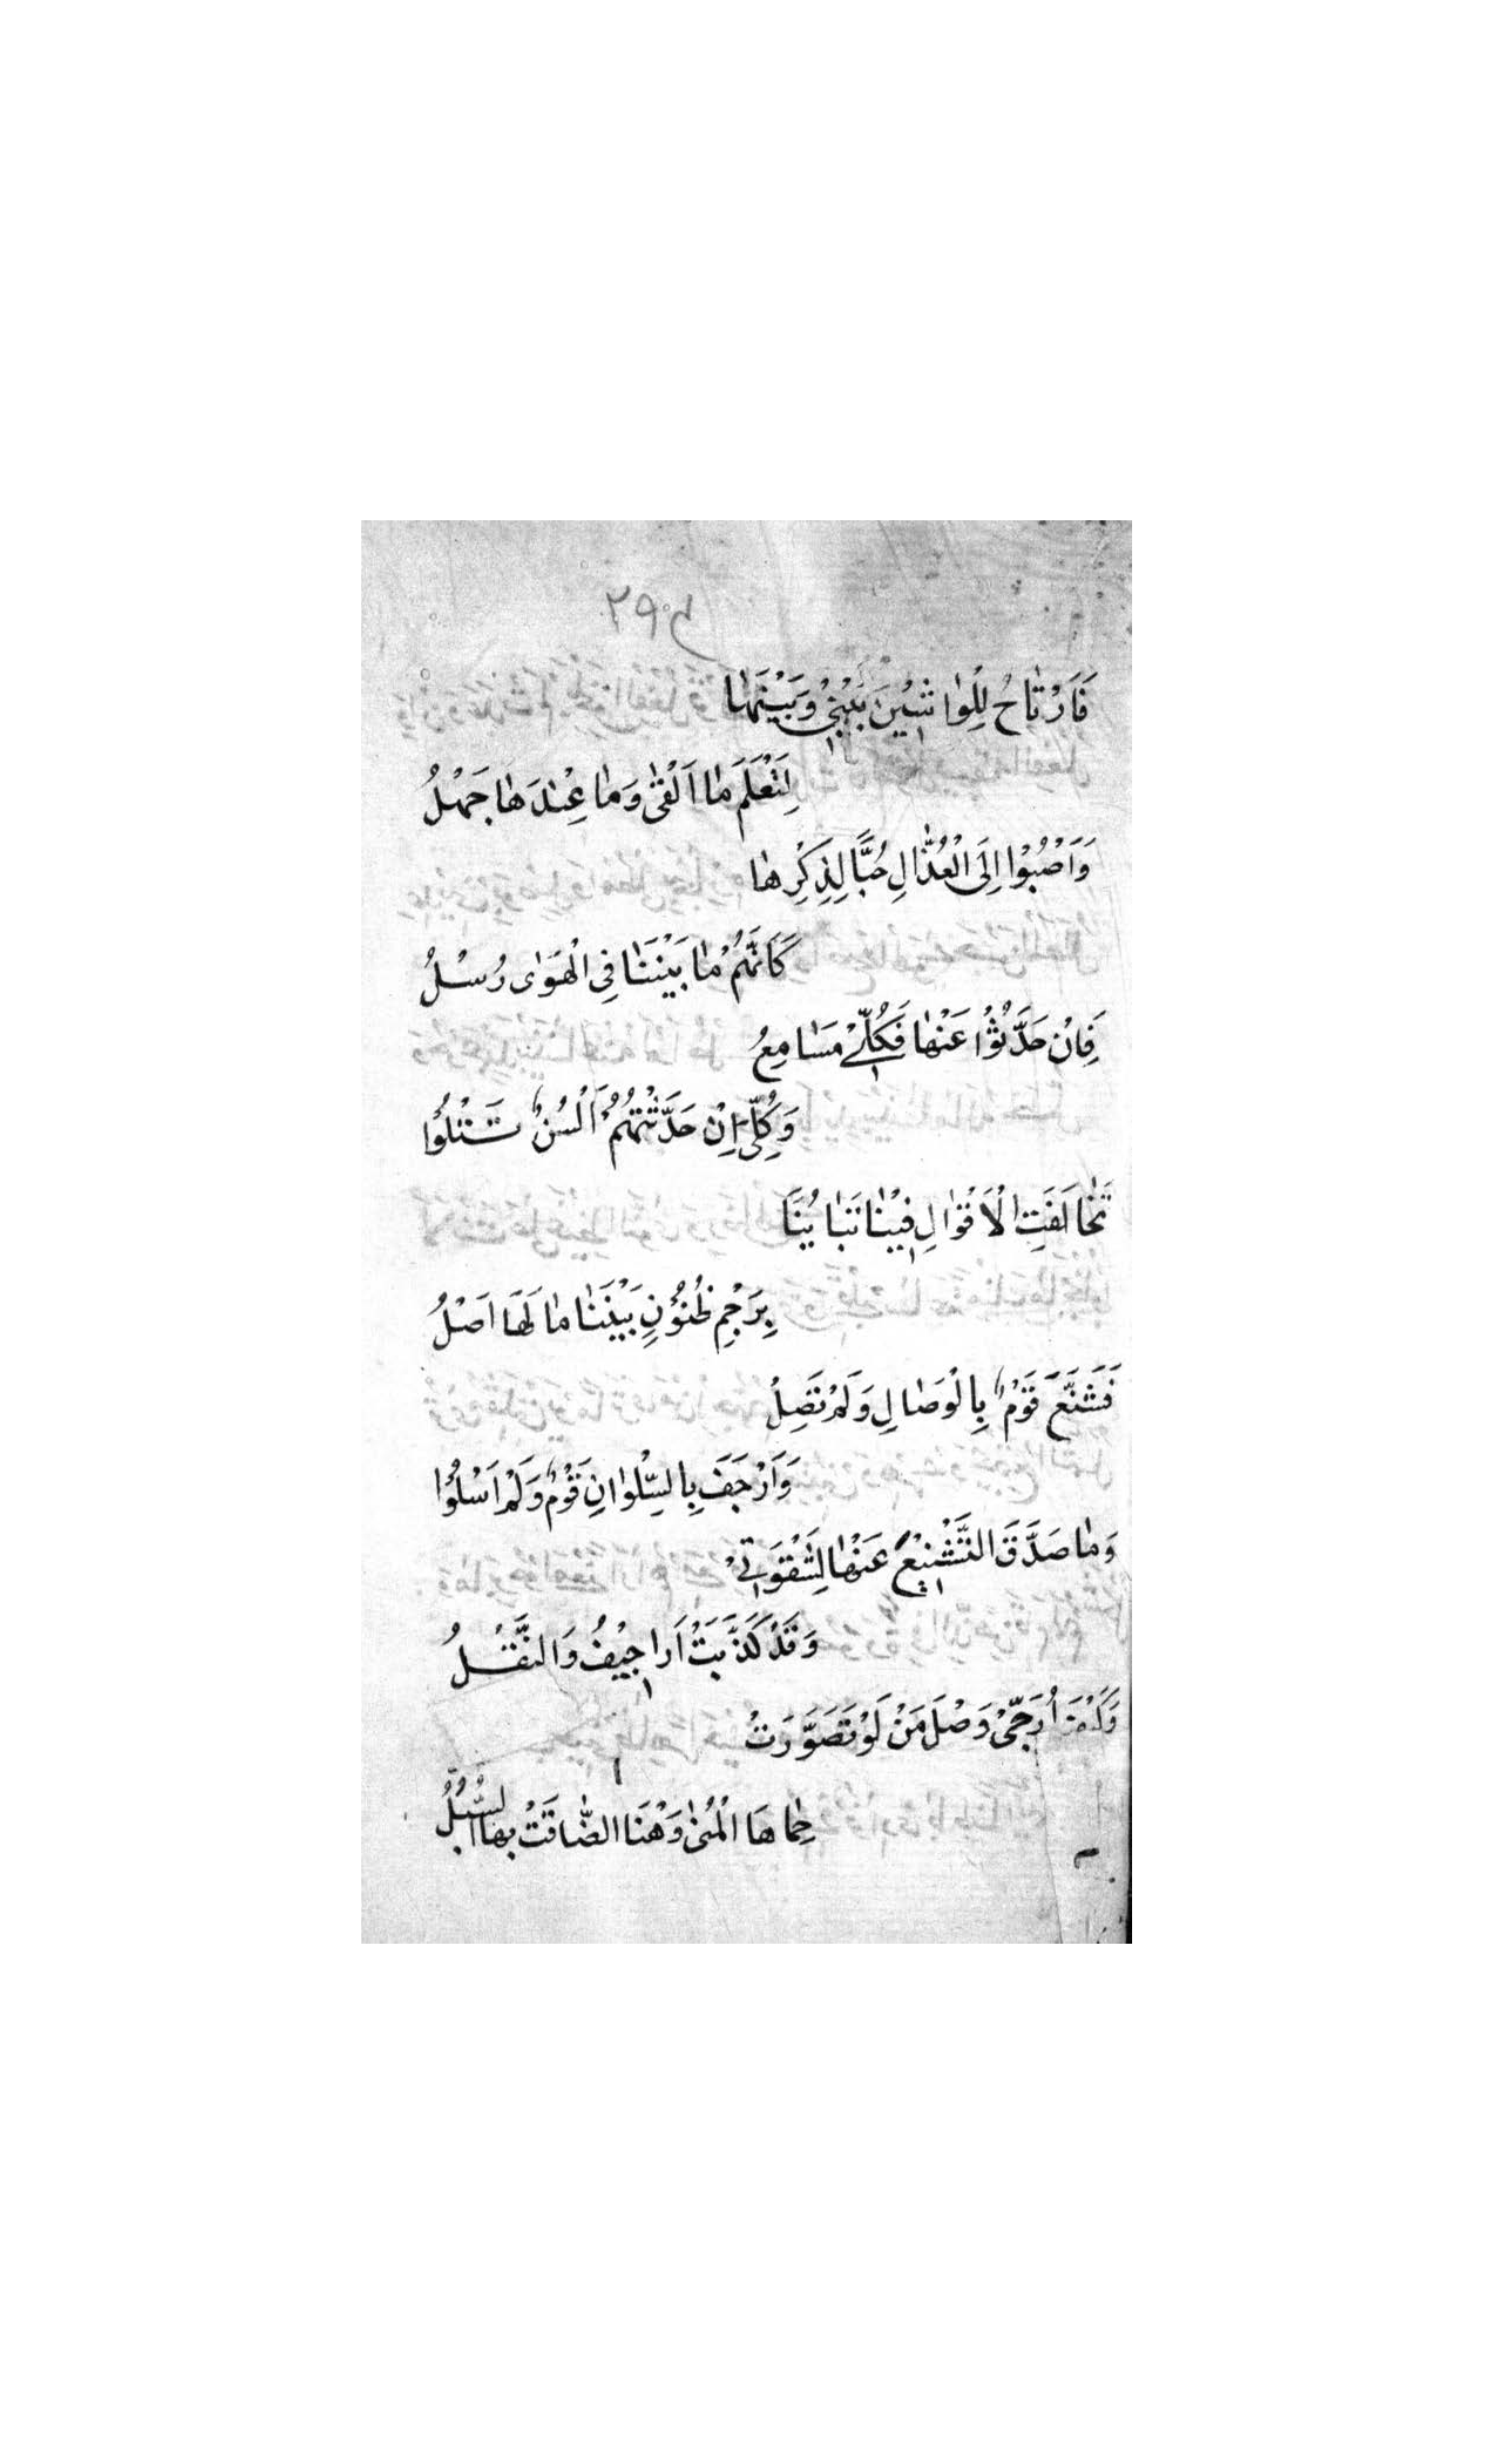 فَاَرْتَاحُ لِلْوٰاشِيْنَ بَيْنِيْ وَبَيْنَهٰا
لِتَعْلَمَ مٰا اَلْقٰى وَمٰا عِنْدَهٰا جَهْلُ
وَاَصْبُوْا اِلَى الْعُذّٰالِ حُبًّا لِذِكْرِهٰا
كَاَنَّهُمْ مٰا بَيْنَنٰا فِى الْهَوٰى رُسْلُ
فَاِنْ حَدَّثُوْا عَنْهٰا فَكُلِّيْ مَسٰامِعُ
وَكُلِّى اِنْ حَدَّثْتُهُمْ اَلْسُنٌ تَتْلُوْا
تَخٰالَفَتِ الْاَقْوٰالِ فِيْنٰا تَبٰايُنًا
بِرَجْمِ ظُنُوْنٍ بَيْنَنٰا مٰا لَهَا اَصْلُ
فَشَنَّعَ قَوْمٌ بِالْوِصٰالِ وَلَمْ تَصِلْ
وَاَرْجَفَ بِالسِّلْوٰانِ قَوْمٌ وَلَمْ اَسْلُوْا
وَمٰا صَدَّقَ التَّشْنِيْعُ عَنْهٰا لِشَقْوَتِيْ
وَقَدْ كَذَّبَتْ اَرٰاجِيْفُ وَالنَّقْلُ
اُرَجِّىْ وَصْلَ مَنْ لَوْ تَصَوَّرَتْ
حِمٰاهَا الْمُنٰى وَهْنَا الضّٰاقَتْ بِهَا السُّبْلُ